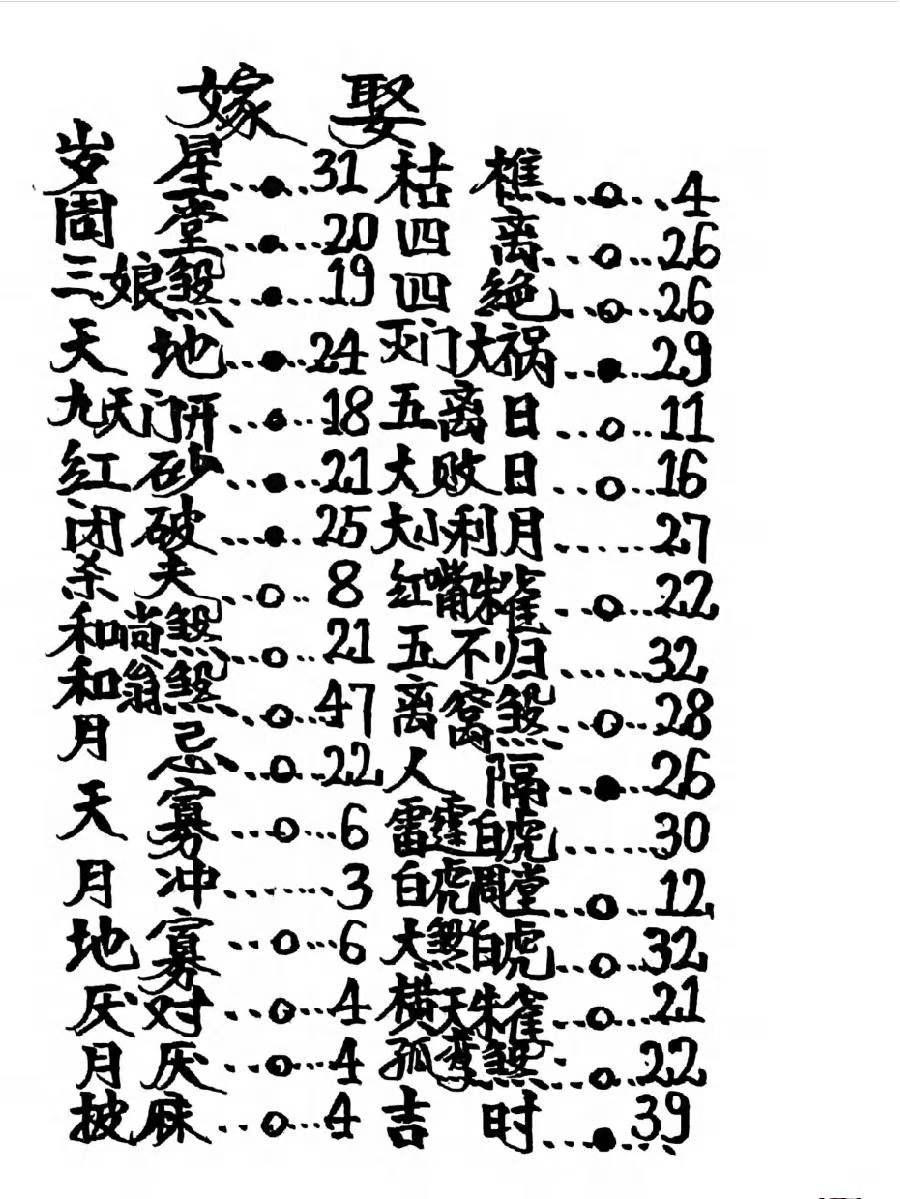 嫁 娶
岁星...●...31
周堂...●...20
三娘煞...●...19
天地...●...24
九天门开...●...18
红砂...●...21
闭破...●...25
杀夫...○...8
和尚煞...○...21
和翁煞...○...47
月忌...○...22
天寡...○...6
月冲.........3
地寡...○...6
厌对...○...4
月厌...○...4
披麻...○...4
枯樵...○...4
四离...○...26
四绝...○...26
灭门大祸...●...29
五离日...○...11
大败日...○...16
大小利月......27
红嘴朱雀...○...22
五不归......32
离窝煞...○...28
人隔...●...26
雷霆白虎......30
白虎周堂...○...12
大煞白虎...○...32
横天朱雀...○...21
孤鸾煞...○...22
吉时...●...39